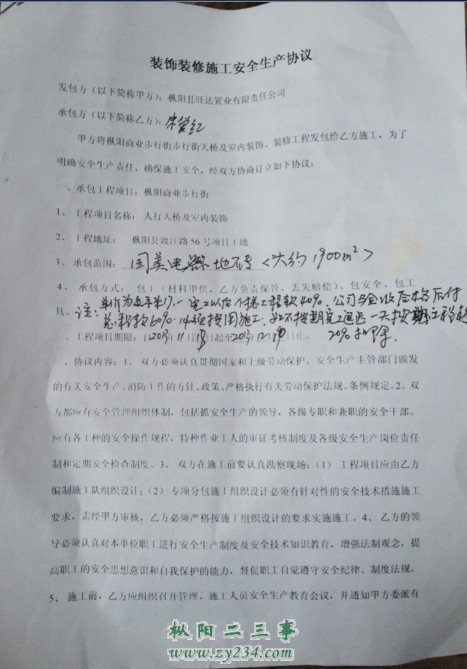 装饰装修施工安全生产协议
发包方（以下简称甲方）：枞阳县旺达置业有限责任公司
承包方（以下简称乙方）：朱荣红
甲方将枞阳商业步行街步行街天桥及室内装饰、装修工程发包给乙方施工，为了
明确安全生产责任，确保施工安全，经双方协商订立如下协议：
、承包工程项目：枞阳商业步行街
1、 工程项目名称：人行天桥及室内装饰
2、 工程地址： 枞阳县渡江路56号项目工地
3、 承包范围：国美电器地砖<大约1900m²>
4、 承包方式： 包工（材料甲供，乙方负责保管，丢失赔偿）、包安全、包工
注：单价为
总
20%扣除
、工程项目期限：2013年11月 起至2013年12月 止。
、协议内容：1、 双方必须认真贯彻国家和上级劳动保护、安全生产主管部门颁发
的有关安全生产、消防工作的方针、政策、严格执行有关劳动保护法规、条例规定。2、双
方都应有安全管理组织体制，包括抓安全生产的领导，各级专职和兼职的安全干部，
应有各工种的安全操作规程，特种作业工人的审证考核制度及各级安全生产岗位责任
制和定期安全检查制度。3、 双方在施工前要认真勘察现场：（1） 工程项目应由乙方
编制施工队组织设计；（2） 专项分包施工组织设计必须有针对性的安全技术措施施工
要求，需经甲方审核，乙方必须严格按施工组织设计的要求实施施工。4、 乙方的领
导必须认真对本单位职工进行安全生产制度及安全技术知识教育，增强法制观念，提
高职工的安全思想意识和自我保护的能力，督促职工自觉遵守安全纪律、制度法规。
5、 施工前，乙方应组织召开管理、施工人员安全生产教育会议，并通知甲方委派有
枞阳二三事
www.zy234.com